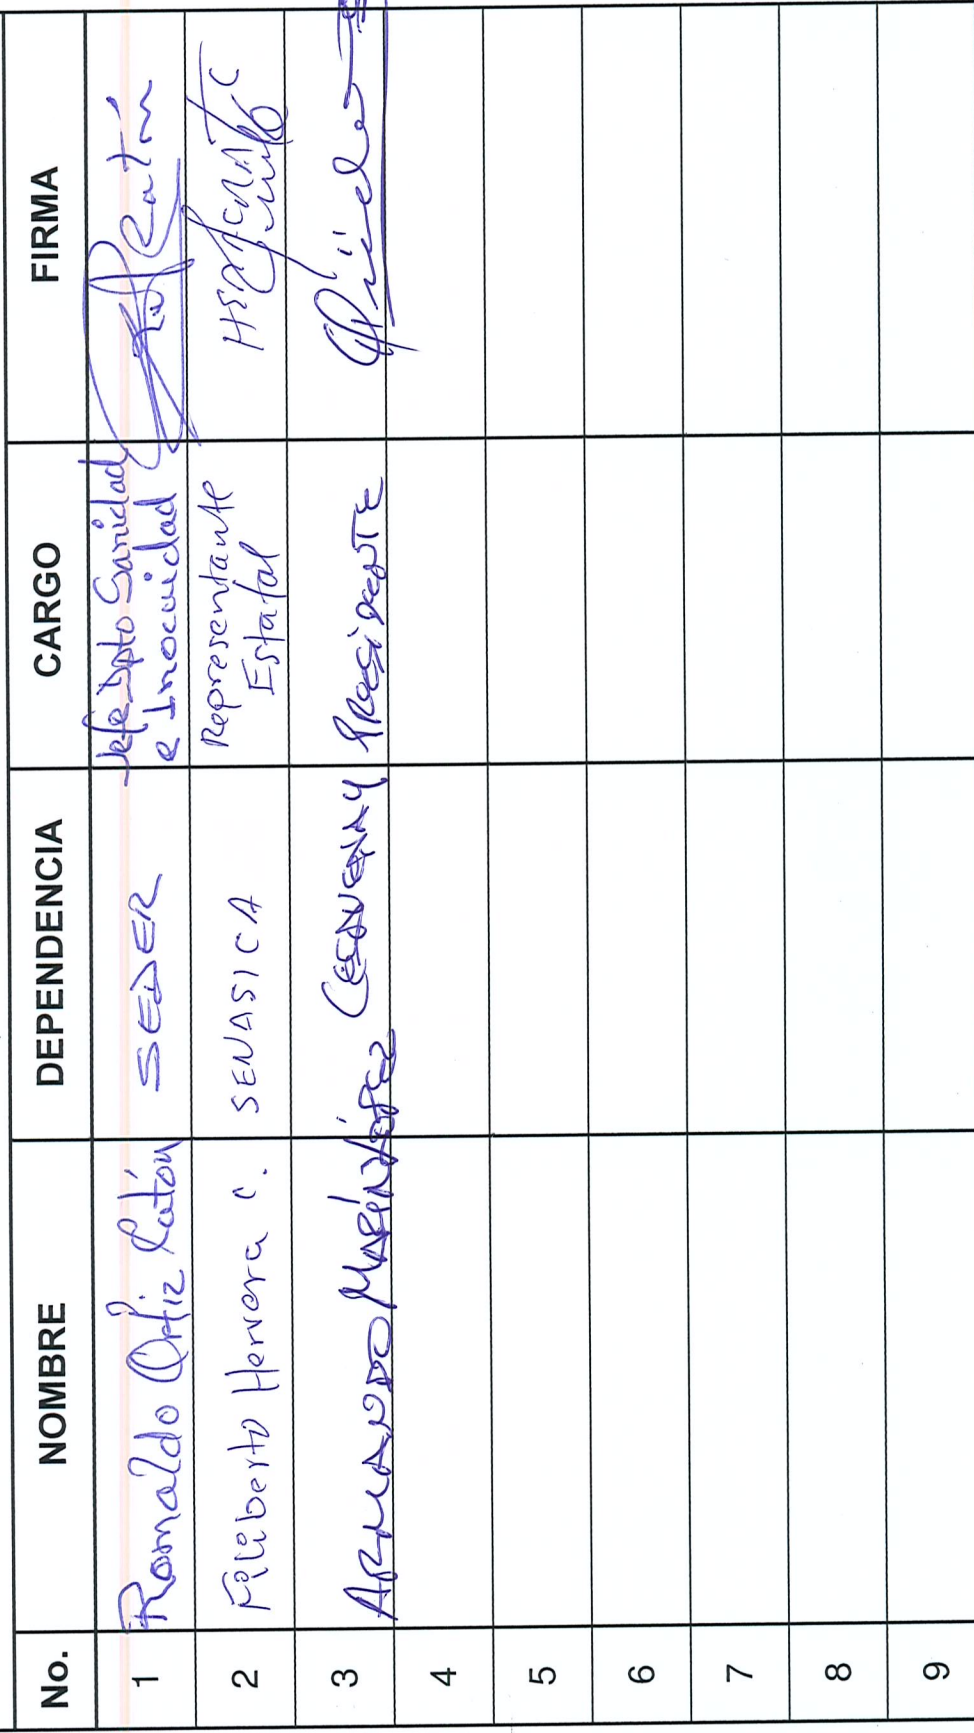 No. NOMBRE DEPENDENCIA CARGO FIRMA
1 Romaldo Ortiz Ratón SEDER Jefe Dpto Sanidad
e Inocuidad Ratón
2 Filiberto Herrera C. SENASICA Representante
Estatal
3 ARMANDO MARÍN LÓPEZ PRESIDENTE
4
5
6
7
8
9